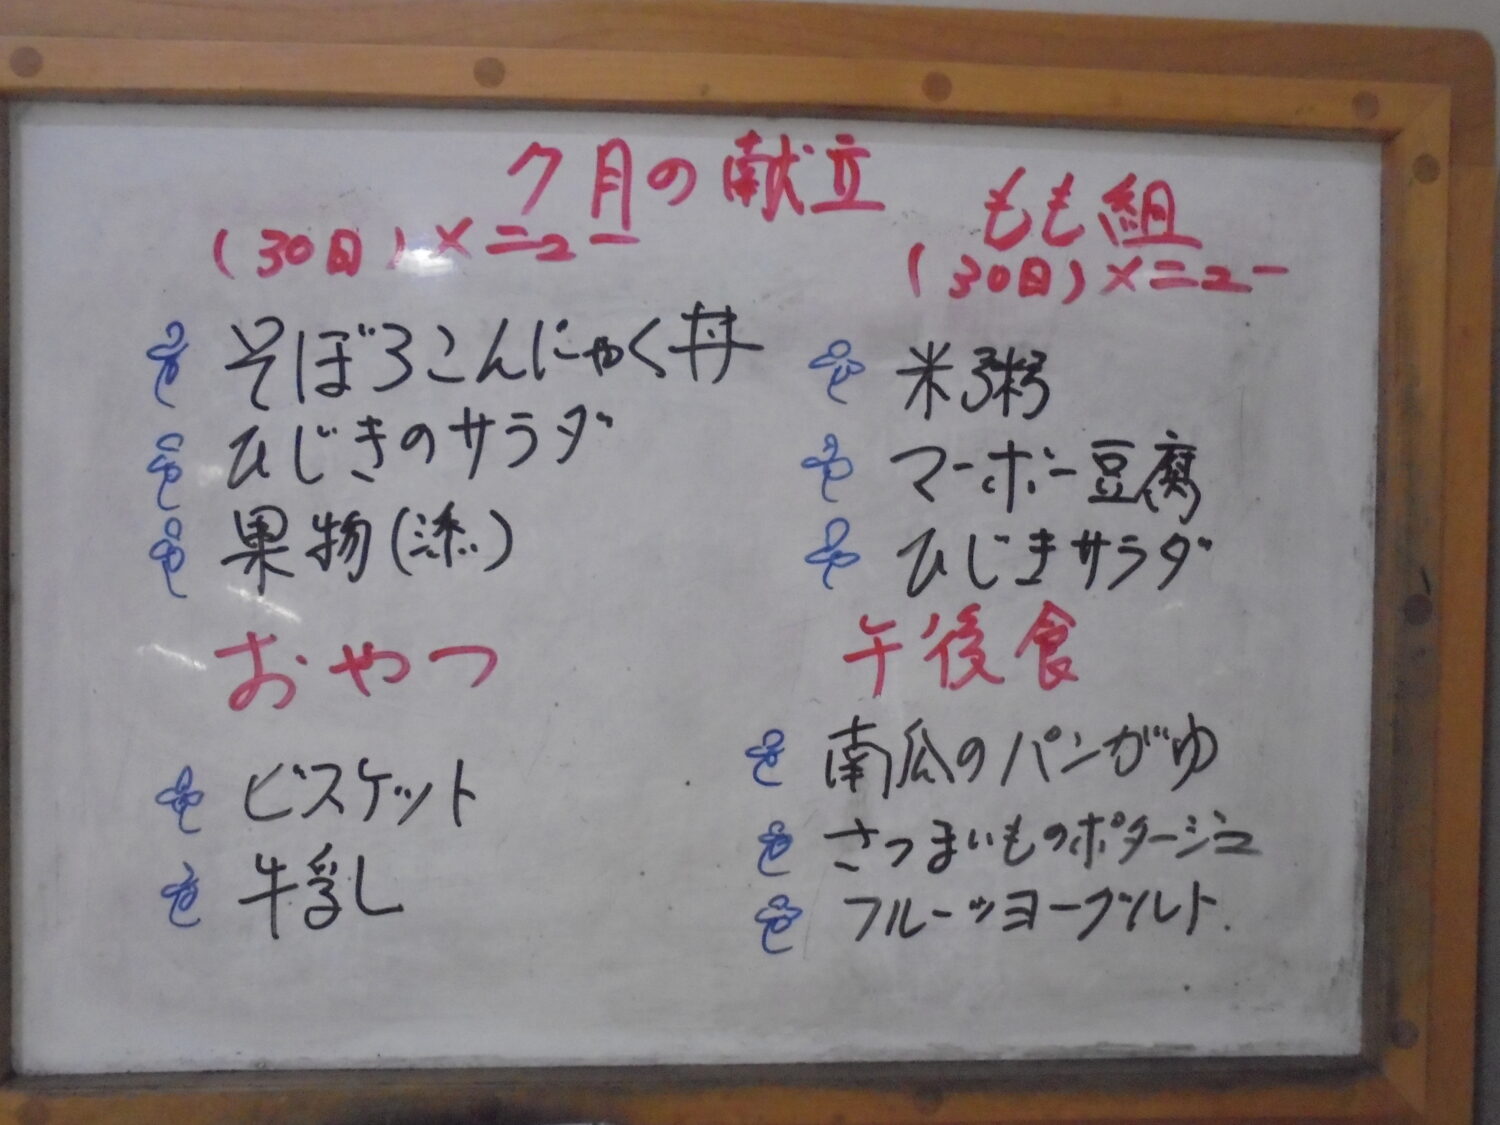 7月の献立
(30日)メニュー
そぼろこんにゃく丼
ひじきのサラダ
果物(添)
おやつ
ビスケット
牛乳
もも組
(30日)メニュー
米粥
マーボー豆腐
ひじきサラダ
午後食
南瓜のパンがゆ
さつまいものポタージュ
フルーツヨーグルト